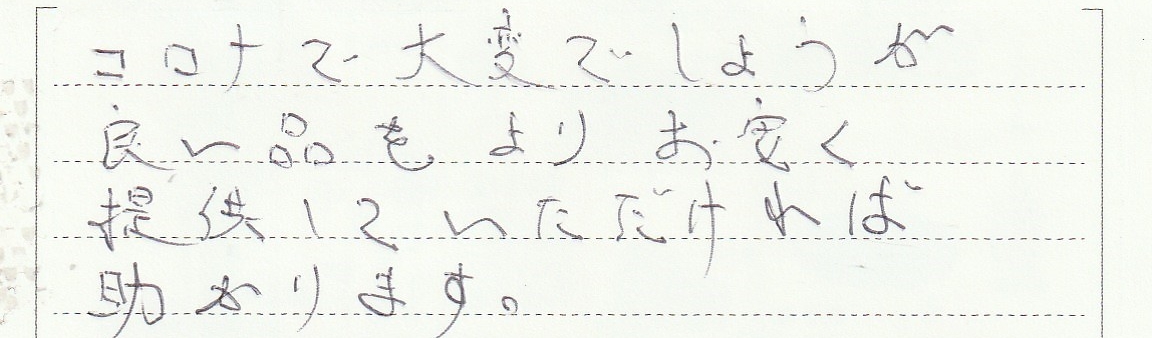 コロナで大変でしょうが
良い品をよりお安く
提供していただければ
助かります。